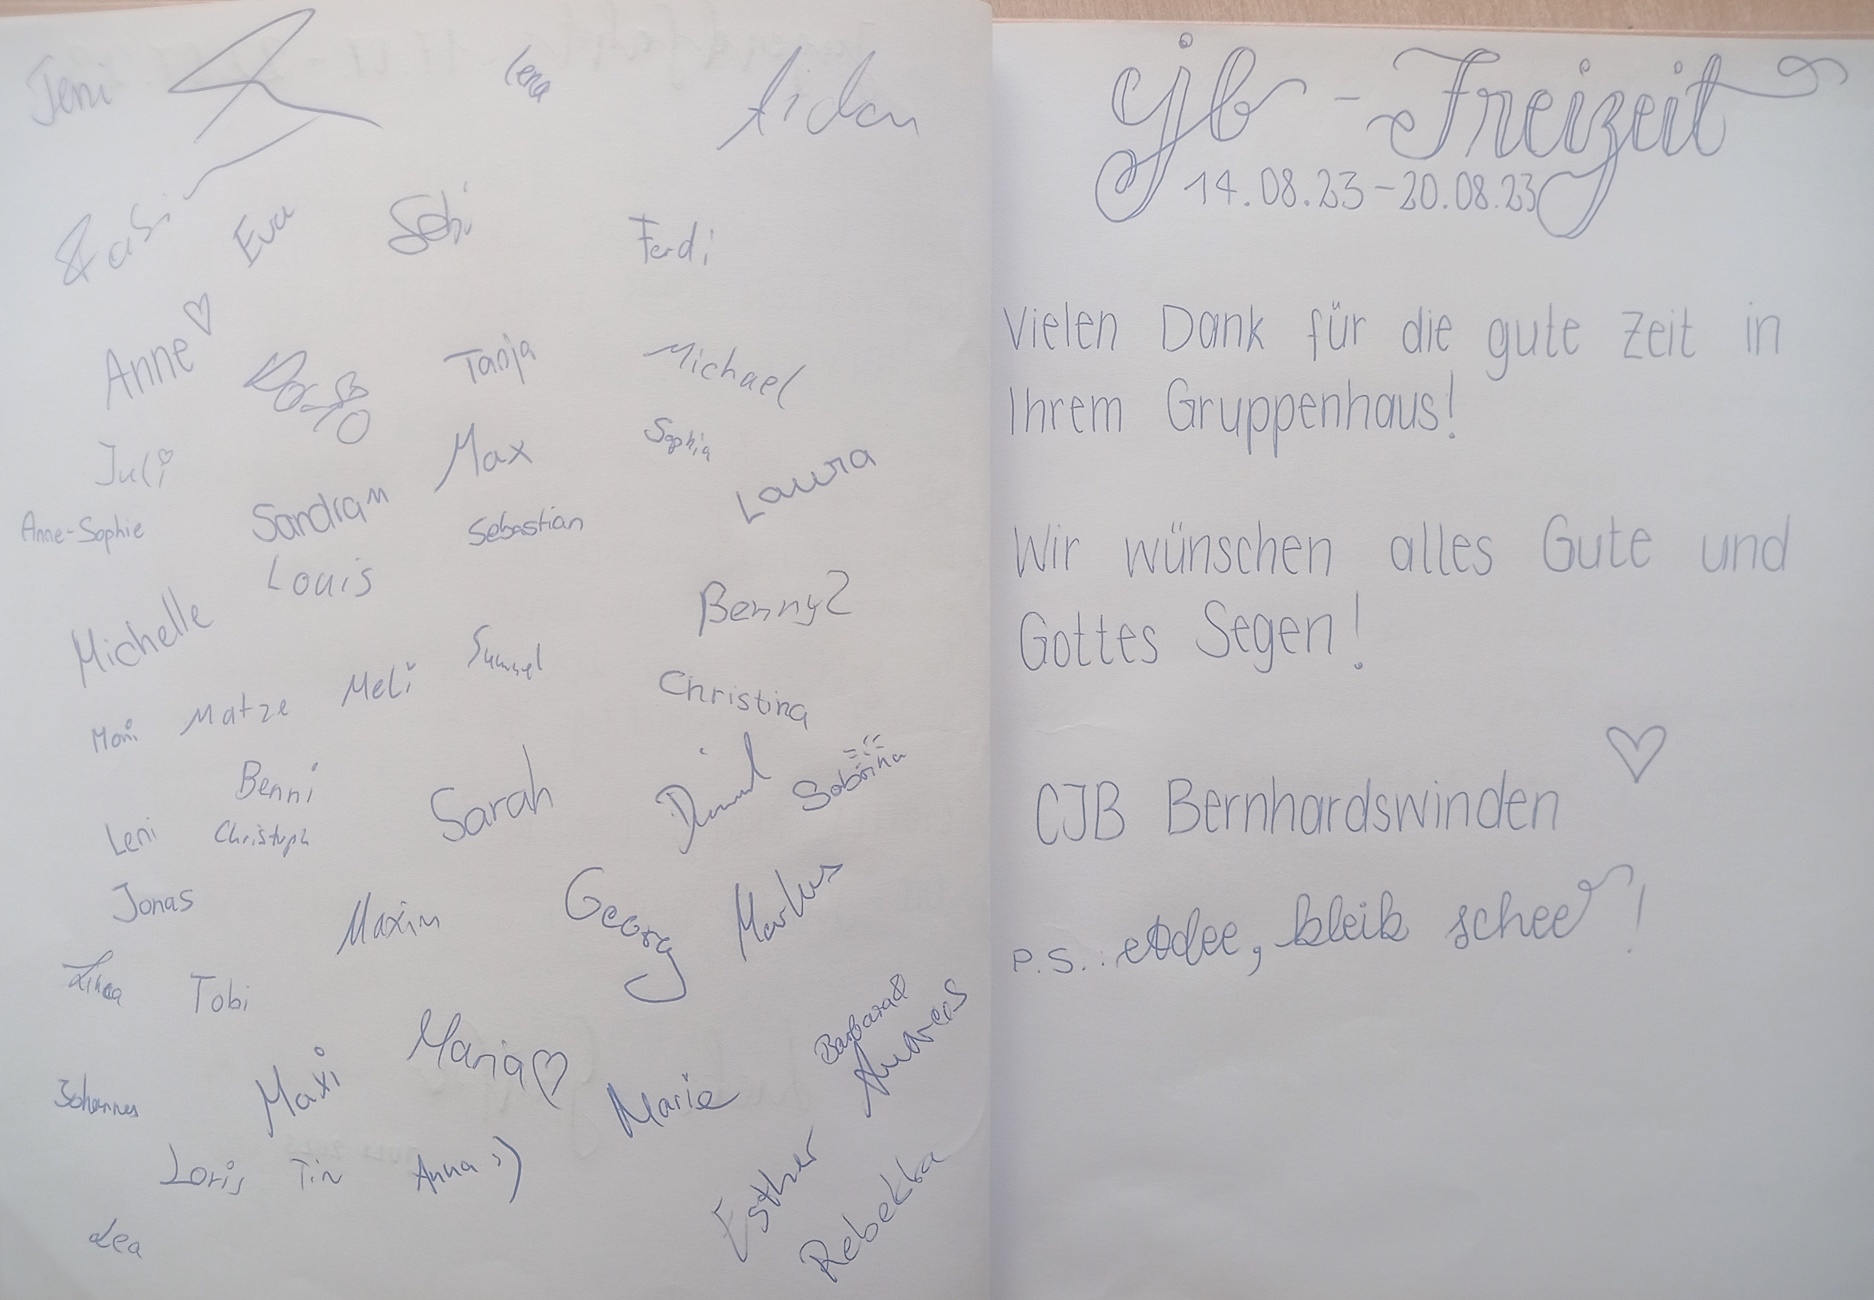 Jeni
Lena
Aidan
Eva
Sebi
Ferdi
Anne ♡
Tanja
Michael
Juli
Max
Sophia
Laura
Anne-Sophie
Sandra M
Sebastian
Louis
Michelle
Benny 2
Moni
Matze
Meli
Samuel
Christina
Benni
Leni
Christoph
Sarah
Daniel
Sabrina
Jonas
Maxim
Georg
Markus
Linea
Tobi
Maria ♡
Barbara
Andreas
Johannes
Maxi
Marie
Loris
Tim
Anna :)
Esther
Rebekka
Lea
cjb - Freizeit
14.08.23 - 20.08.23
Vielen Dank für die gute Zeit in
Ihrem Gruppenhaus!
Wir wünschen alles Gute und
Gottes Segen!
CJB Bernhardswinden ♡
P.S.: adee, bleib schee!